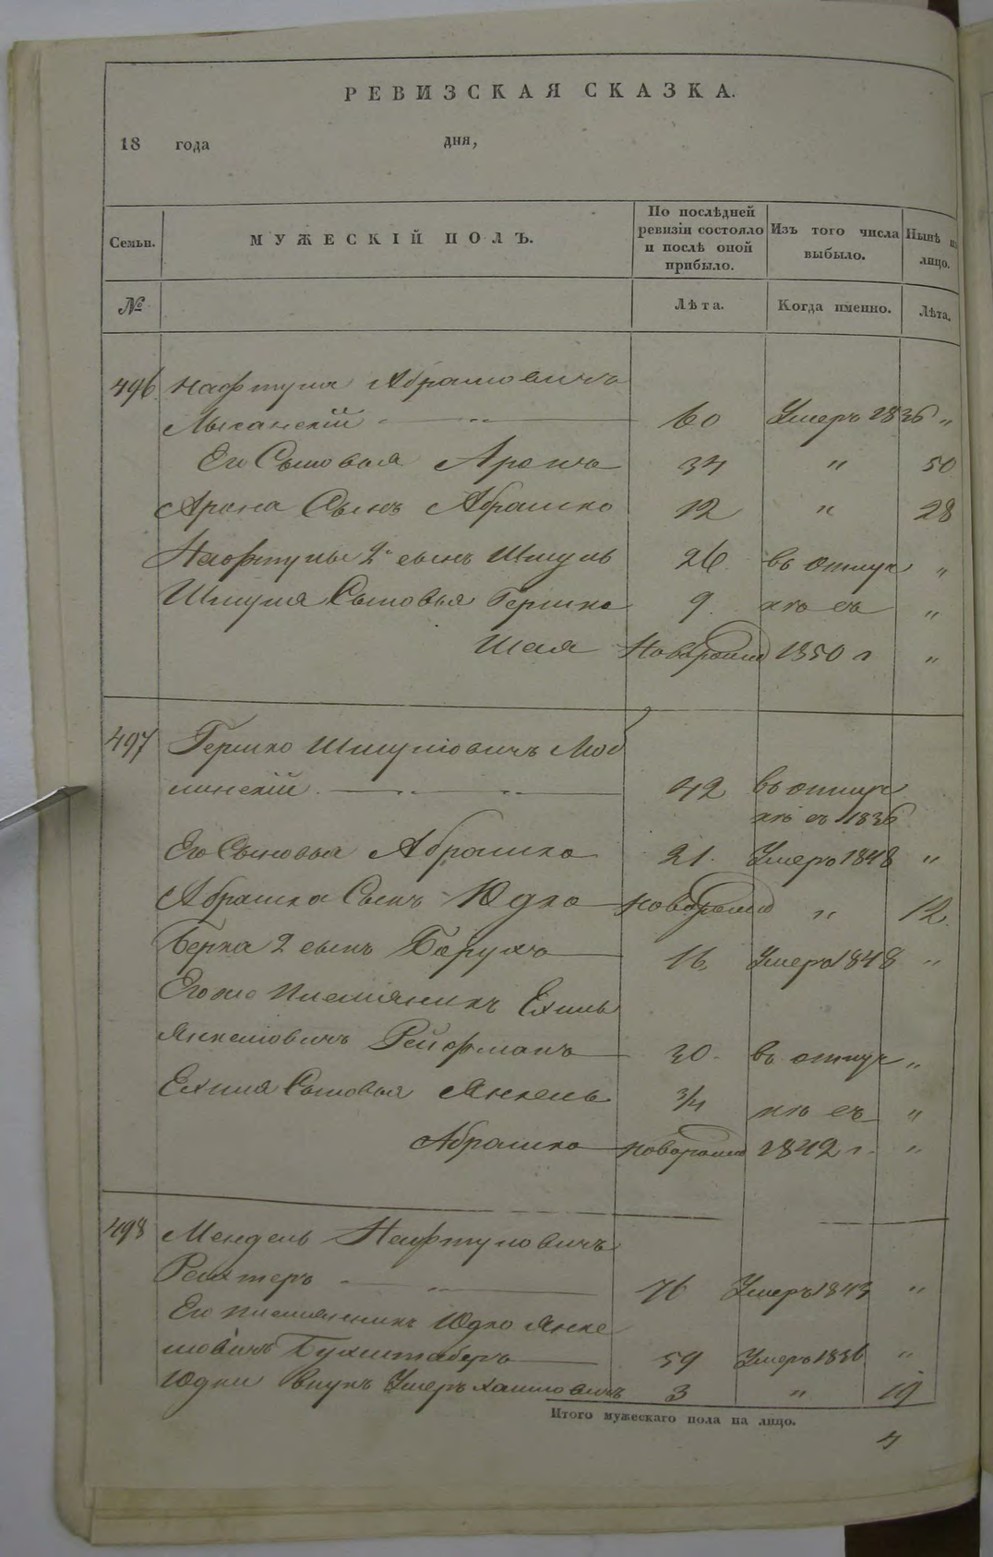 РЕВИЗСКАЯ СКАЗКА.
18 года дня,
Семьи. МУЖЕСКІЙ ПОЛЪ. По послѣдней ревизіи состояло и послѣ оной прибыло. Изъ того числа выбыло. Нынѣ на лицо.
№ Лѣта. Когда именно. Лѣта.
496 Нафтула Абрамовичъ
Лысанскій 60 Умеръ 1836 "
Его Сыновья Аронъ 34 " 50
Арона Сынъ Абрашко 12 " 28
Нафтулы 2й сынъ Шмуль 26 въ отлуч "
Шмуля Сыновья Гершко 9 кѣ съ "
Шая Новорожд 1850 г "
497 Гершко Шмулiовичъ Люб
линскій 42 въ отлуч
кѣ съ 1836
Его Сыновья Абрашко 21 Умеръ 1848 "
Абрашка Сынъ Юдко новорожд " 12
2 сынъ Борухъ 16 Умеръ 1848 "
Его же Племянникъ Ехиль
Янкелiовичъ Рейфманъ 30 въ отлуч "
Ехиля Сыновья Янкель 3/4 кѣ съ "
Абрашко новорожд 1842 г. "
498 Мендель Нафтуловичъ
Рейхтеръ 76 Умеръ 1843 "
Его Племянникъ Юдко Янке
лiовичъ Бухштаберъ 59 Умеръ 1836 "
Юдки внукъ Хаимовичъ 3 " 19
Итого мужескаго пола на лицо.
4